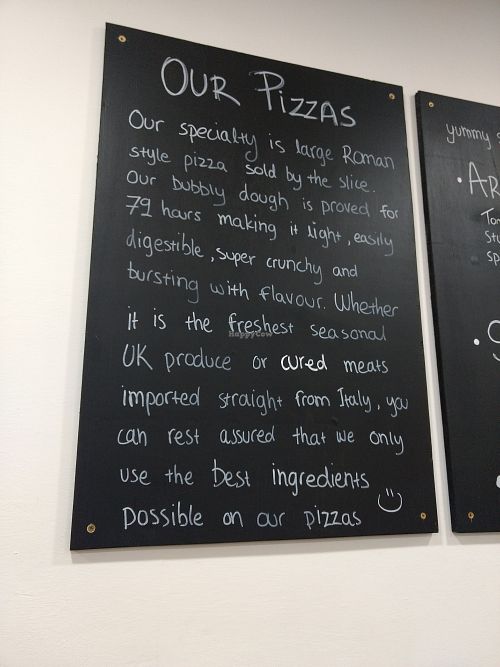 OUR PIZZAS
Our specialty is large Roman
style pizza sold by the slice.
Our bubbly dough is proved for
79 hours making it light, easily
digestible, super crunchy and
bursting with flavour. Whether
it is the freshest seasonal
UK produce or cured meats
imported straight from Italy, you
can rest assured that we only
use the best ingredients
possible on our pizzas
yummy
HappyCow